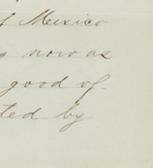 of Mexico
now as
good of-
ted by